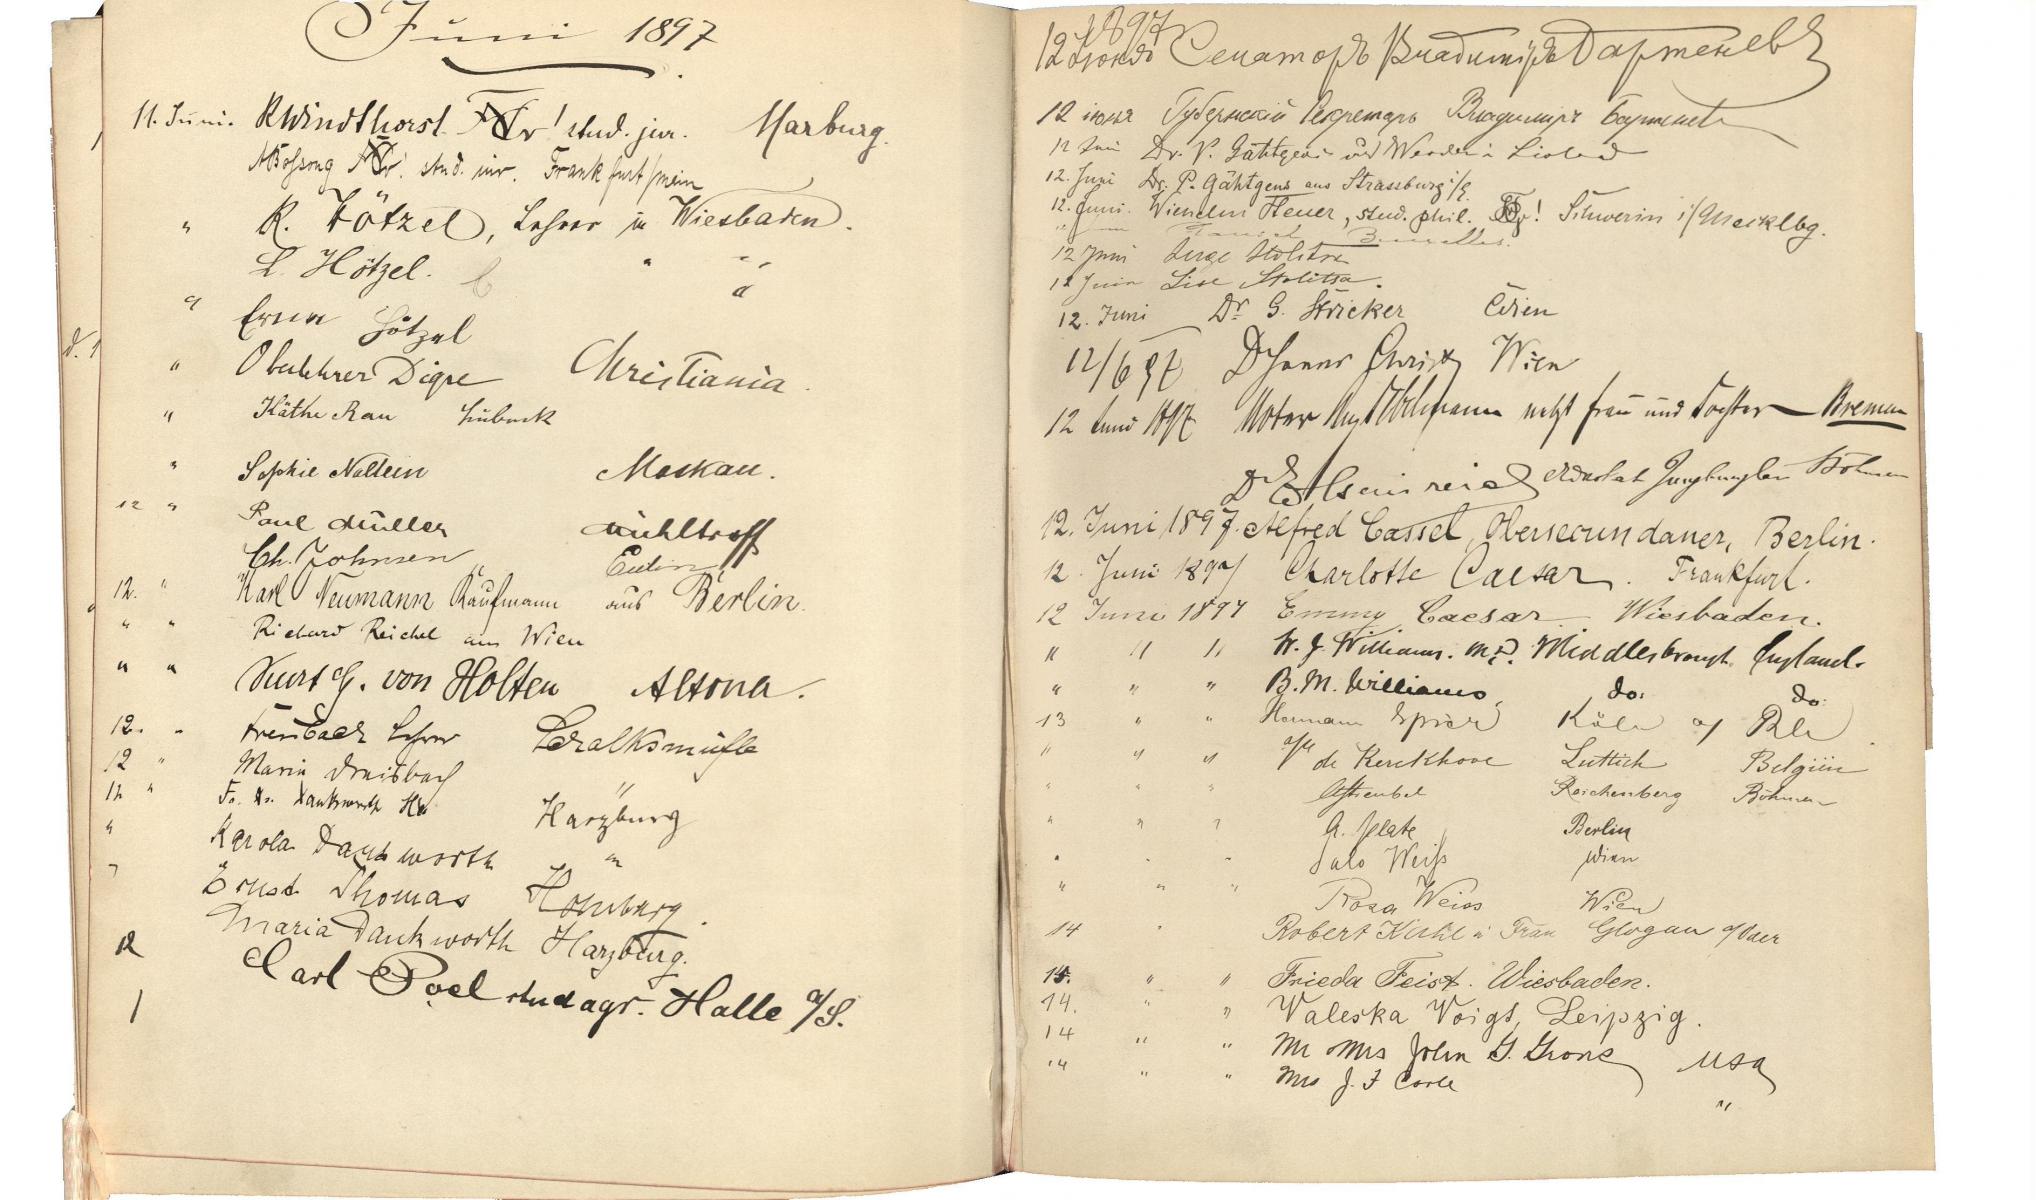 Juni 1897
11. Juni. R Windthorst stud. jur. Marburg.
stud. jur. Frankfurt/Main
" K. Hötzel, Lehrer in Wiesbaden.
L. Hötzel. " "
" Erna Hötzel "
" Oberlehrer Digre Christiania.
" Käthe Rau Lübeck
" Sophie Nöltein Moskau.
12 " Paul Müller Mühltroff
Ch. Johnsen Eutin
12. " Karl Neumann Kaufmann aus Berlin.
" " Richard Reichel aus Wien
" " Kurt G. von Holten Altona.
12. " Lehrer Schalksmühle
12 " Maria Dreisbach "
12 " Fr. Dr. Dankworth Harzburg
" Karola Dankworth "
" Ernst Thomas Homburg.
Maria Dankworth Harzburg.
12 Carl Poel stud agr. Halle a/S.
1897
12 Сенаторъ Владиміръ
12 июня Губернскій Секретарь Владимиръ
12 Juni Dr. P. Gähtgens
12. Juni Dr. P. Gähtgens aus Strassburg i/E.
12. Juni. Heuer, stud. phil. Schwerin i/Mecklbg.
12 Juni Serge
12 Juin Lise Stolitsa.
12. Juni Dr. G. Stricker Wien
12/6 97 Dr Hanns Christ Wien
12 Juni 1897 Notar nebst Frau und Tochter – Bremen
Böhmen
12. Juni 1897. Alfred Cassel, Obersecundaner, Berlin.
12. Juni 1897 Charlotte Caesar. Frankfurt.
12 Juni 1897 Emmy Caesar Wiesbaden.
" " " W. J. Williams. M.D. Middlesbrough. England.
" " " B. M. Williams, do: do:
13 " " Hermann Köln a/ Rh
" " " de Kerckhove Lüttich Belgien
" " " Reichenberg Böhmen
" " " A. Plate Berlin
" " " Salo Weiß Wien
" " " Rosa Weiss Wien
14 " Robert u Frau Glogau a/Oder
14. " " Frieda Feist. Wiesbaden.
14. " " Valeska Voigt, Leipzig.
14 " " Mr Mrs John G. USA
14 " " Mrs J. F "